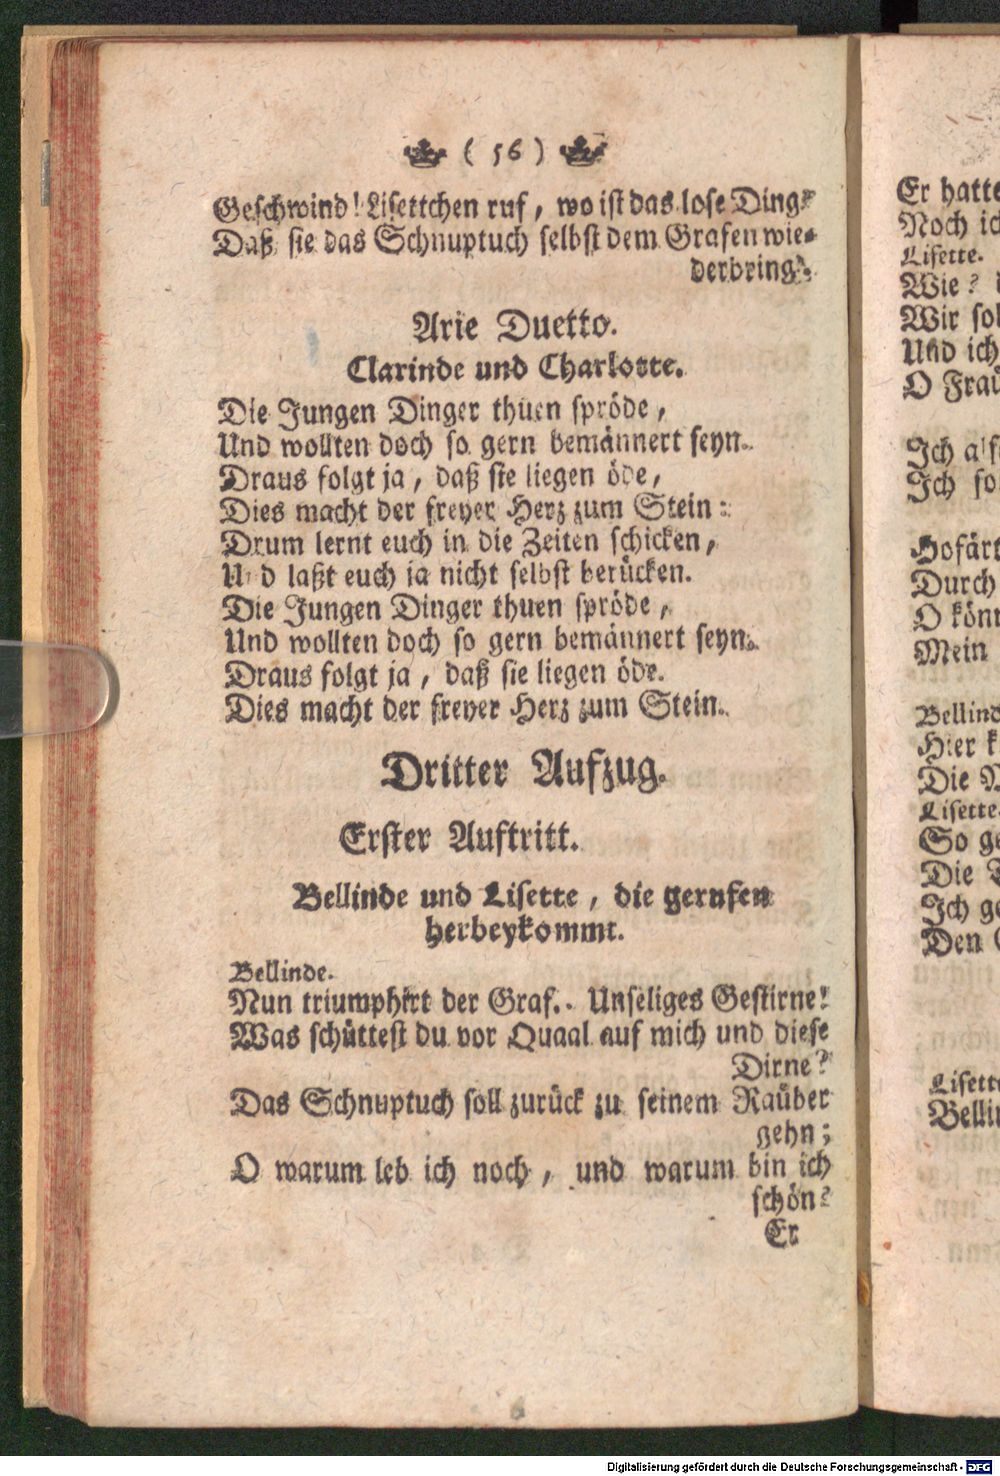 ( 56 )
Geschwind! Lisettchen ruf, wo ist das lose Ding?
Daß sie das Schnuptuch selbst dem Grafen wie-
derbring.
Arie Duetto.
Clarinde und Charlotte.
Die Jungen Dinger thuen spröde,
Und wollten doch so gern bemännert seyn.
Draus folgt ja, daß sie liegen öde,
Dies macht der freyer Herz zum Stein:
Drum lernt euch in die Zeiten schicken,
Und laßt euch ja nicht selbst berücken.
Die Jungen Dinger thuen spröde,
Und wollten doch so gern bemännert seyn.
Draus folgt ja, daß sie liegen öde.
Dies macht der freyer Herz zum Stein.
Dritter Aufzug.
Erster Auftritt.
Bellinde und Lisette, die gerufen
herbeykommt.
Bellinde.
Nun triumphirt der Graf. Unseliges Gestirne!
Was schüttest du vor Quaal auf mich und diese
Dirne?
Das Schnuptuch soll zurück zu seinem Raüber
gehn;
O warum leb ich noch, und warum bin ich
schön?
Er
Er hatte
Noch
Lisette.
Wie?
Wir
Und ich
O
Ich
Ich
Durch
O
Mein
Hier
Die
Lisette.
So
Die
Ich
Den
Digitalisierung gefördert durch die Deutsche Forschungsgemeinschaft - DFG